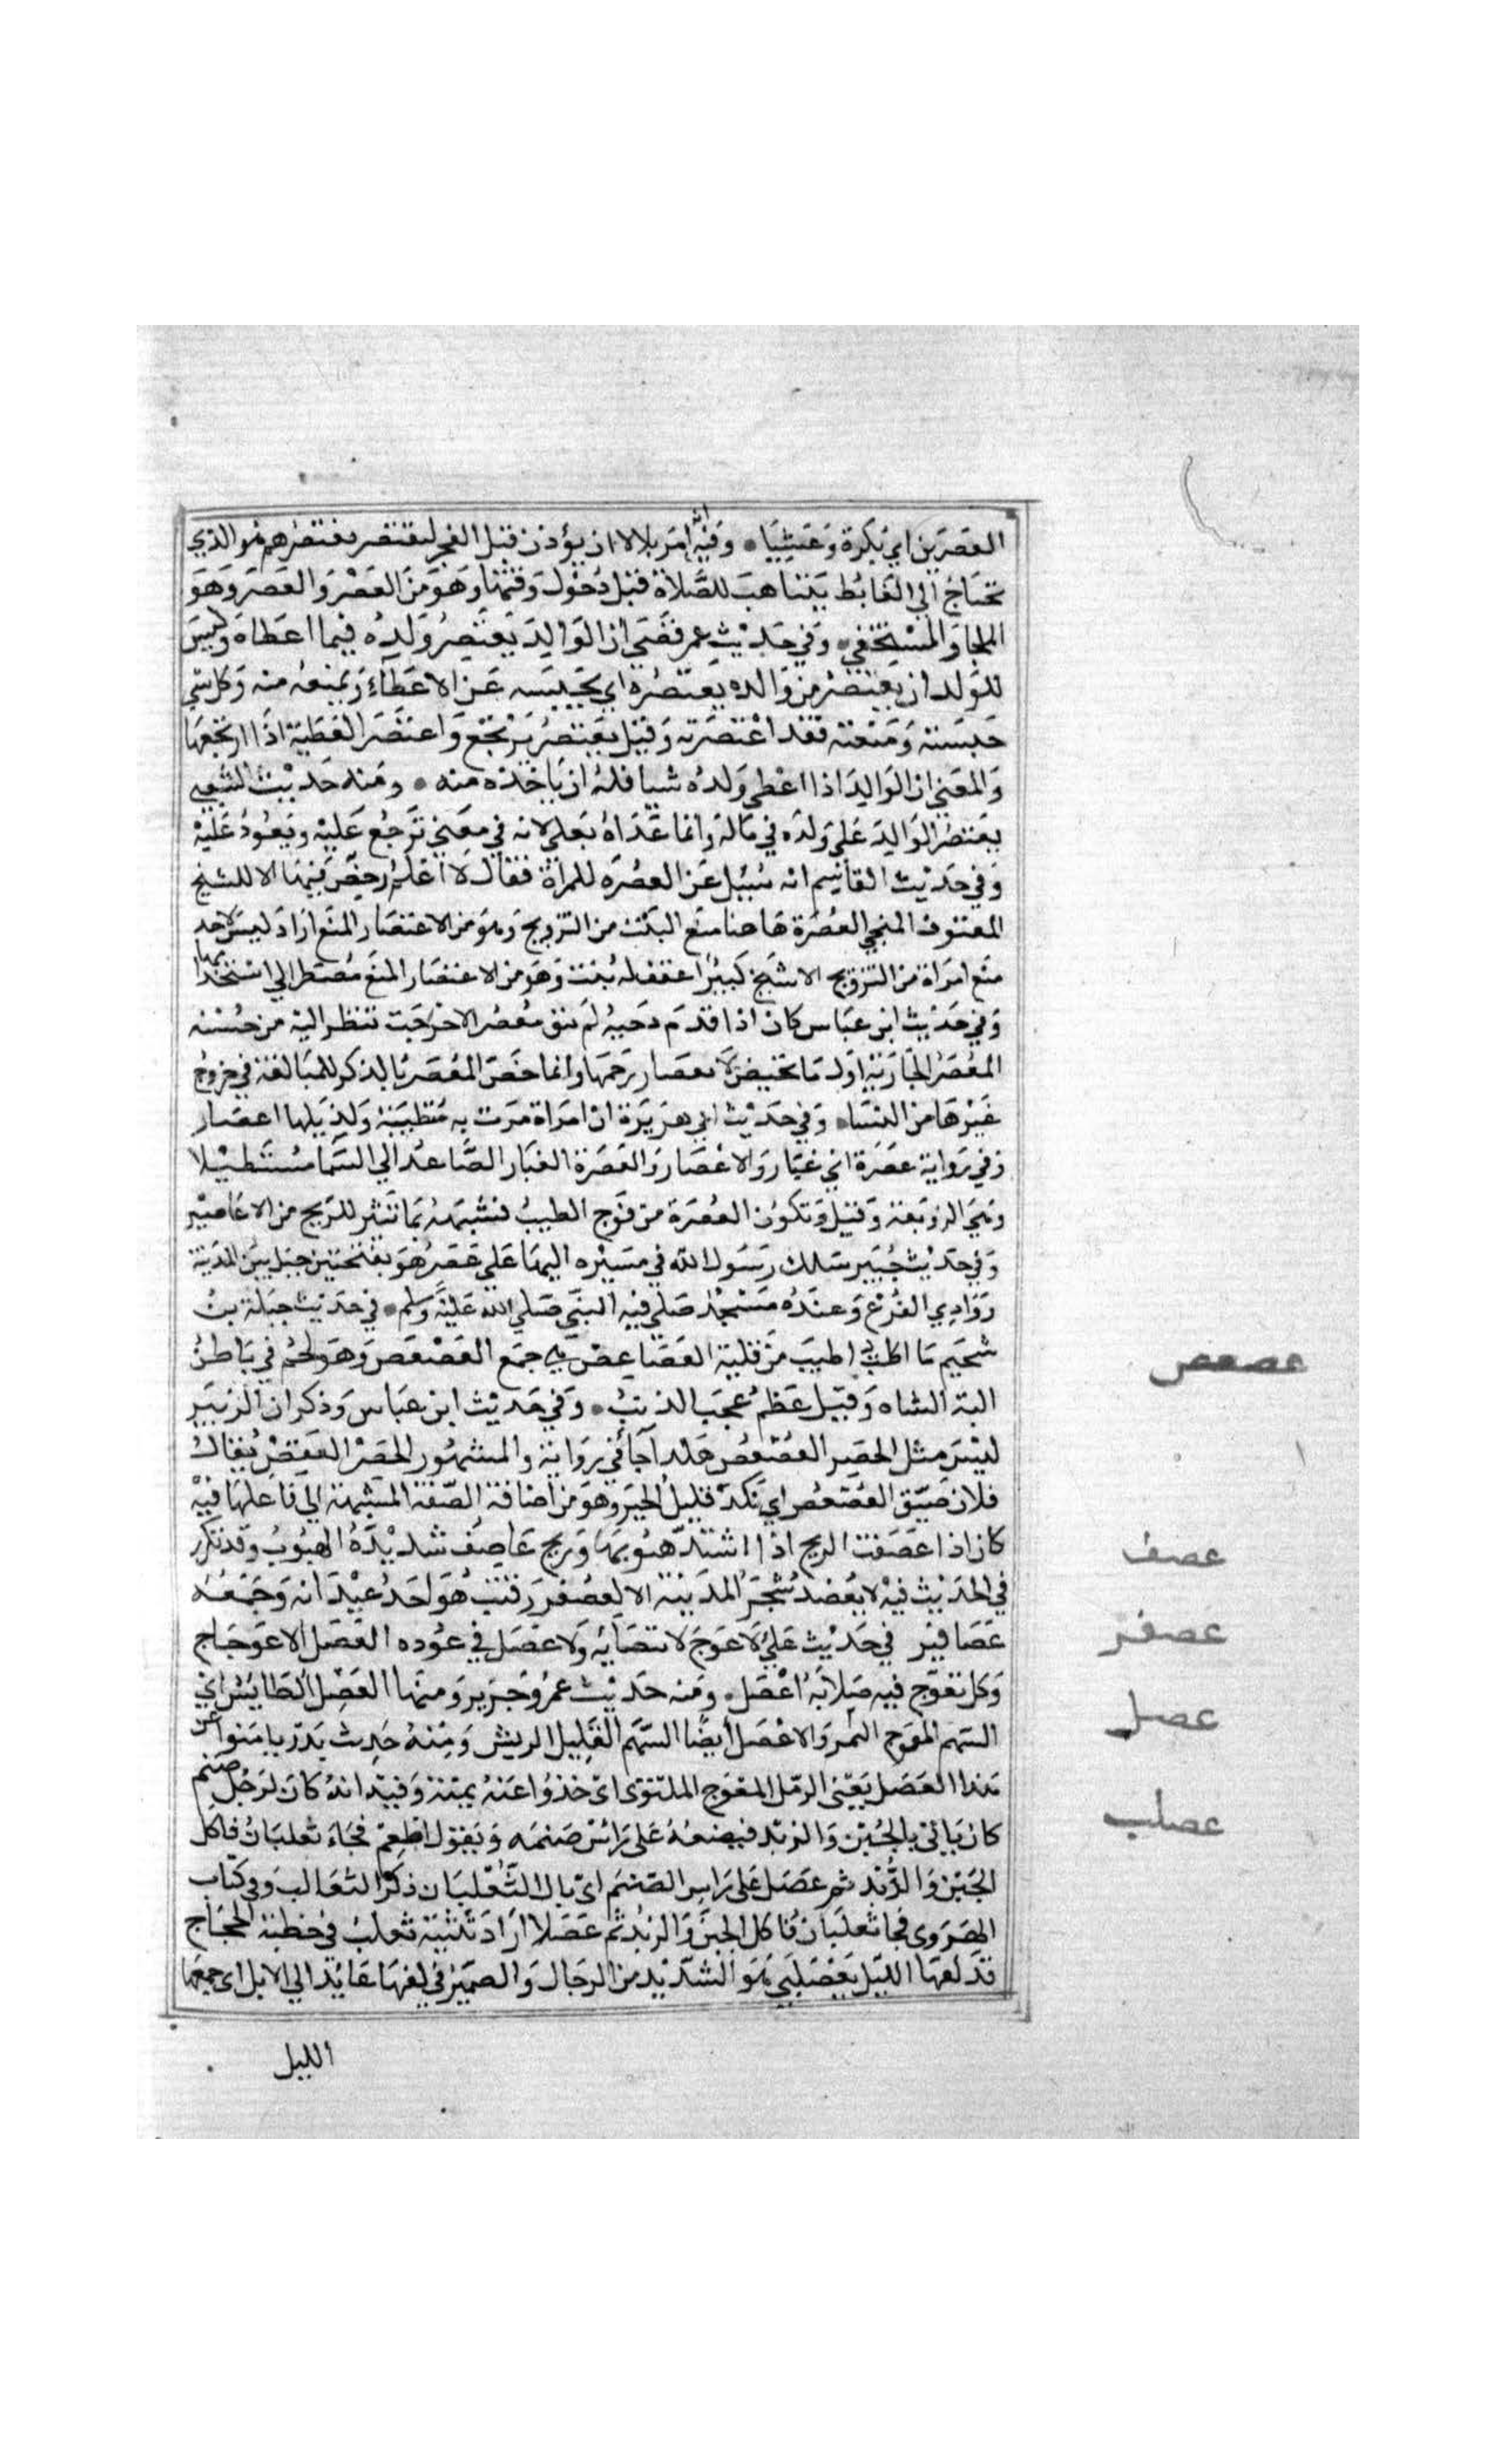 العصرين اي بكرة وعشيا وفيه انه امر بلالا ان يؤذن قبل الفجر ليعتصر معتصرهم هو الذي
يحتاج الي الغائط يتناهب للصلاة قبل دخول وقتها وهو من العصر والعصر وهو
الملجا والمستخفي وفي حديث عمر قضي ان الوالد يعتصر ولده فيما اعطاه وليس
للولد ان يعتصر من والده يعتصره اي يحبسه عن الاعطاء ويمنعه منه وكل شي
حبسته ومنعته فقد اعتصرته وقيل يعتصر يرتجع واعتصر العطية اذا ارتجعها
والمعني ان الوالد اذا اعطي ولده شيا فله ان ياخذه منه ومنه حديث الشعبي
يعتصر الوالد علي ولده في ماله وانما عداه بعلي لانه في معني ترجع عليه ويعود عليه
وفي حديث القاسم انه سيل عن العصرة للمراة فقال لا اعلم رخص فيها الا للشيخ
المعقوف المنحي العصرة هاهنا منع البنت من التزويج وهو من الاعتصار المنع اراد ليس لاحد
منع امراة من التزويج الا شيخ كبير اعقف له بنت وهو من الاعتصار المنع مضطر الي استخدامها
وفي حديث ابن عباس كان اذا قدم دحية لم تبق معصر الا خرجت تنظر اليه من حسنه
المعصر الجارية اول ما تحيض لانعصار رحمها وانما خص المعصر بالذكر للمبالغة في خروج
غيرها من النسا وفي حديث ابي هريرة ان امراة مرت به متطيبة ولذيلها اعصار
وفي رواية عصرة اي غبار والاعصار والعصرة الغبار الصاعد الي السما مستطيلا
وهي الزوبعة وقيل وتكون العصرة من فوج الطيب فشبهه بما تثير للريح من الاعاصير
وفي حديث خيبر سلك رسول الله في مسيره اليها علي عصر هو بفتحتين جبل بين المدينة
ووادي الفرع وعنده مسجد صلي فيه النبي صلي الله عليه وسلم في حديث جبلة بن
سحيم ما اكلت اطيب من قلية العصاعص هي جمع العصعص وهو لحم في باطن
الية الشاه وقيل عظم عجب الذنب وفي حديث ابن عباس وذكر ان الزبير
ليس مثل الحصر العصعص هكذا جا في رواية والمشهور الحصر العقص يقال
فلان ضيق العصعص اي نكد قليل الخير وهو من اضافة الصفة المشبهة الي فاعلها فيه
كان اذا عصفت الريح اذا اشتد هبوبها وريح عاصف شديدة الهبوب وقد تكرر
في الحديث فيه لا يعضد شجر المدينة الا لعصفر قتب هو احد عيدانه وجمعه
عصافير في حديث علي لا عوج لانتصابه ولا عصل في عوده العصل الاعوجاج
وكل تعوج فيه صلابة اعصل ومنه حديث عمر وجرير ومنها العصل الطايش اي
السهم المعوج المتن والاعصل ايضا السهم القليل الريش ومنه حديث بدر يامنوا عن
هذا العصل يعني الرمل المعوج الملتوي اي خذوا عنه يمنة وفيه انه كان لرجل صنم
كان ياتي بالجبن والزبد فيضعه علي راس صنمه ويقول اطعم فجاء ثعلبان فاكل
الجبن والزبد ثم عصل علي راس الصنم اي بال الثعلبان ذكر الثعالب وفي كتاب
الهروي فجا ثعلبان فاكلا الجبن والزبد ثم عصلا اراد تثنية ثعلب في خطبة الحجاج
قد لفها الليل بعصلبي هو الشديد من الرجال والضمير في لفها عايد الي الابل اي جمعها
الليل
عصعص
عصف
عصفر
عصل
عصلب